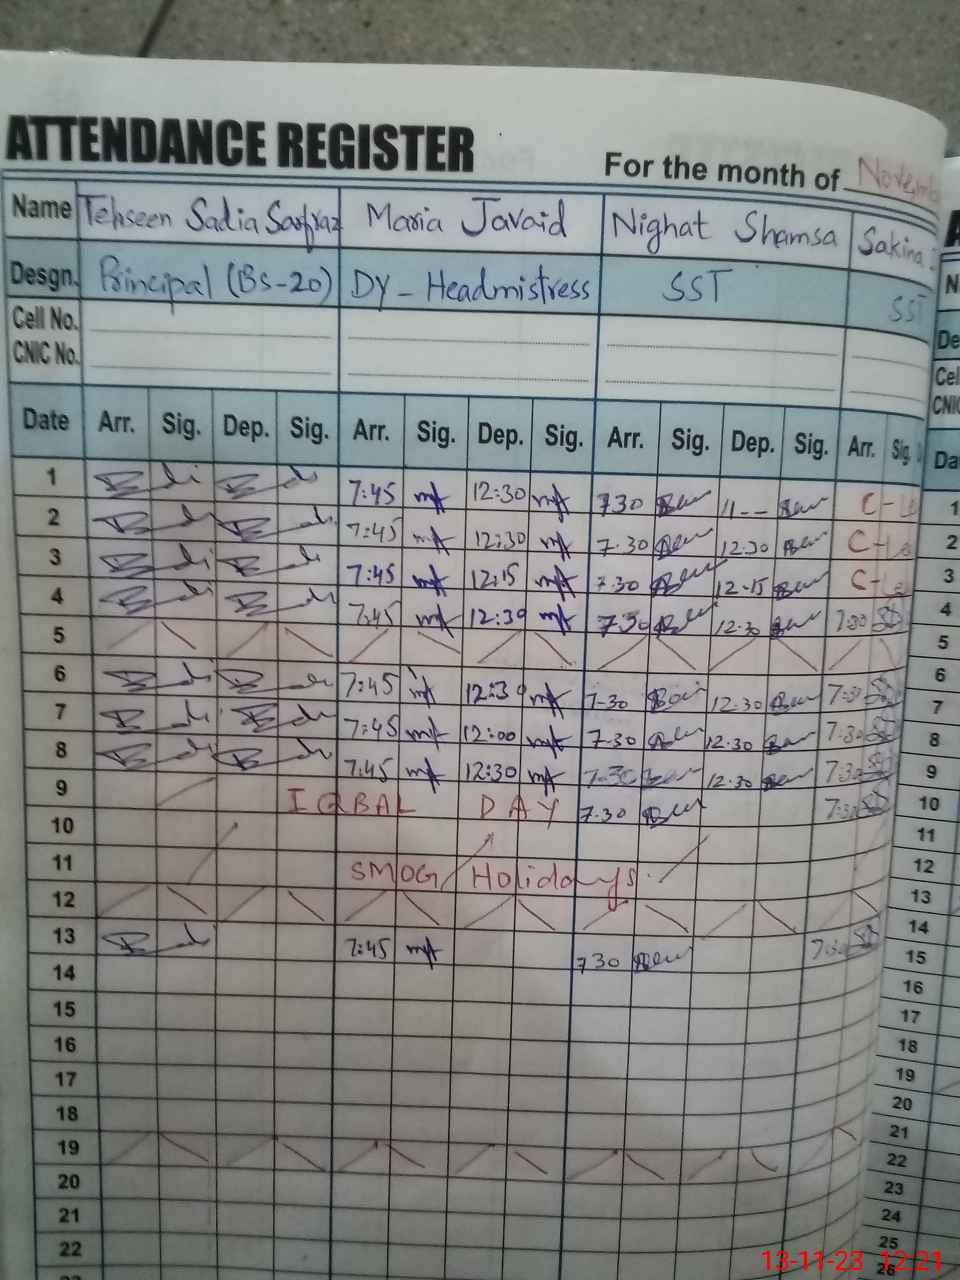 ATTENDANCE REGISTER
For the month of
Name Tehseen Sadia Sarfraz Maria Javaid Nighat Shamsa Sakina
Desgn. Principal (BS-20) DY-Headmistress SST SST
Cell No.
CNIC No.
Date Arr. Sig. Dep. Sig. Arr. Sig. Dep. Sig. Arr. Sig. Dep. Sig. Arr. Sig.
1 7:45 12:30 730 11-- C-
2 7:45 12:30 7.30 12.30 C-
3 7:45 12:15 7.30 12.15 C-
4 7:45 12:30 7.30 12.30 7:30
5
6 7:45 12:30 7-30 12.30 7:30
7 7:45 12:00 7.30 12.30 7:30
8 7:45 12:30 7-30 12.30 7:30
9 IQBAL DAY 7.30 7:30
10
11 SMOG Holidays
12
13 7:45 730 7:30
14
15
16
17
18
19
20
21
22
De
Cel
CNIC
Da
1
2
3
4
5
6
7
8
9
10
11
12
13
14
15
16
17
18
19
20
21
22
23
24
25
26
13-11-23 12:21